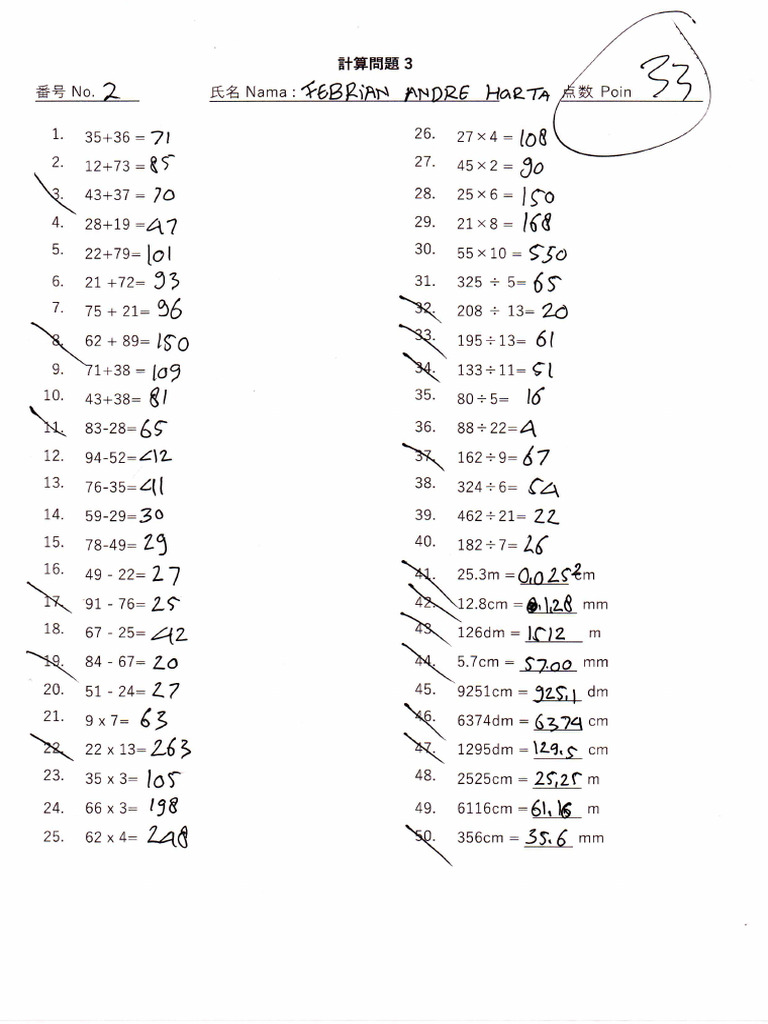 計算問題 3
番号 No. 2 氏名 Nama : FEBRIAN ANDRE HARTA 点数 Poin 33
1. 35+36 = 71
2. 12+73 = 85
3. 43+37 = 70
4. 28+19 = 47
5. 22+79= 101
6. 21 +72= 93
7. 75 + 21= 96
8. 62 + 89= 150
9. 71+38 = 109
10. 43+38= 81
11. 83-28= 65
12. 94-52= 42
13. 76-35= 41
14. 59-29= 30
15. 78-49= 29
16. 49 - 22= 27
17. 91 - 76= 25
18. 67 - 25= 42
19. 84 - 67= 20
20. 51 - 24= 27
21. 9 x 7= 63
22. 22 x 13= 263
23. 35 x 3= 105
24. 66 x 3= 198
25. 62 x 4= 248
26. 27×4 = 108
27. 45×2 = 90
28. 25×6 = 150
29. 21×8 = 168
30. 55×10 = 550
31. 325 ÷ 5= 65
32. 208 ÷ 13= 20
33. 195÷13= 61
34. 133÷11= 51
35. 80÷5= 16
36. 88÷22= 4
37. 162÷9= 67
38. 324÷6= 54
39. 462÷21= 22
40. 182÷7= 26
41. 25.3m = 0,025² cm
42. 12.8cm = 1,28 mm
43. 126dm = 1512 m
44. 5.7cm = 57.00 mm
45. 9251cm = 925,1 dm
46. 6374dm = 6374 cm
47. 1295dm = 129.5 cm
48. 2525cm = 25,25 m
49. 6116cm = 61,16 m
50. 356cm = 35.6 mm